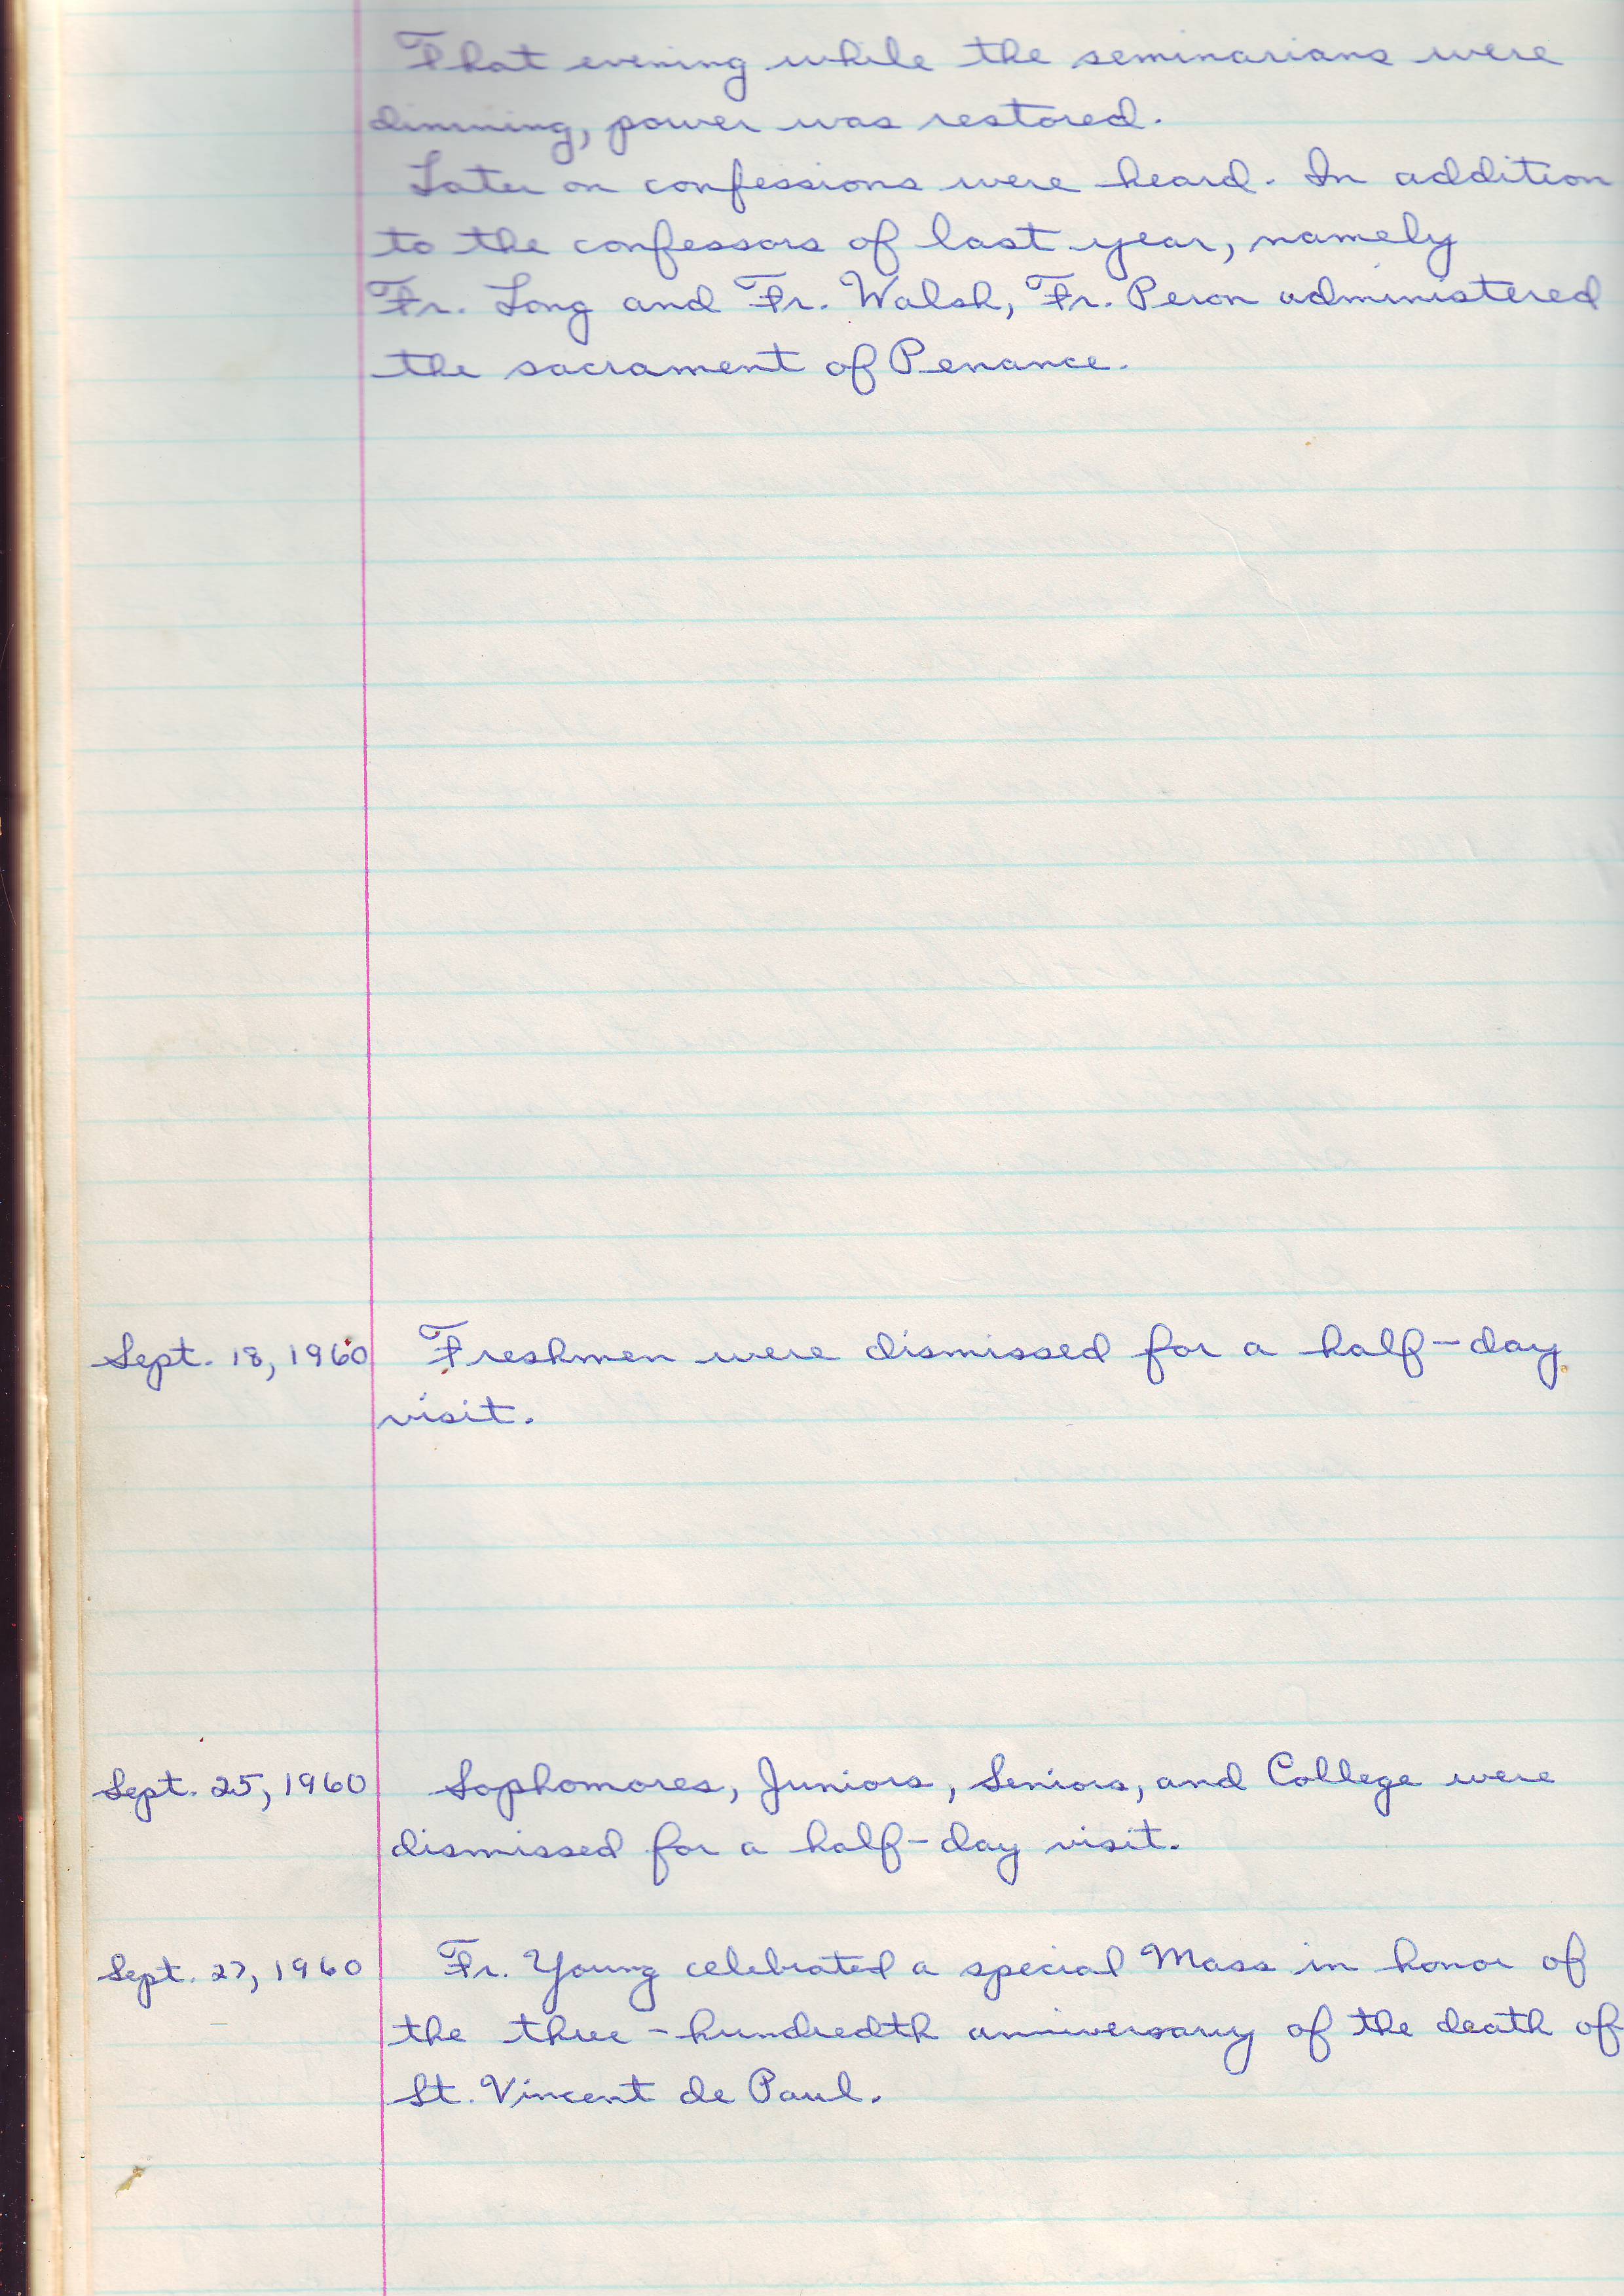 That evening while the seminarians were
dinning, power was restored.
Later on confessions were heard. In addition
to the confessors of last year, namely
Fr. Long and Fr. Walsh, Fr. Peron administered
the sacrament of Penance.
Sept. 18, 1960 Freshmen were dismissed for a half-day
visit.
Sept. 25, 1960 Sophomores, Juniors, Seniors, and College were
dismissed for a half-day visit.
Sept. 27, 1960 Fr. Young celebrated a special Mass in honor of
the three-hundredth anniversary of the death of
St. Vincent de Paul.